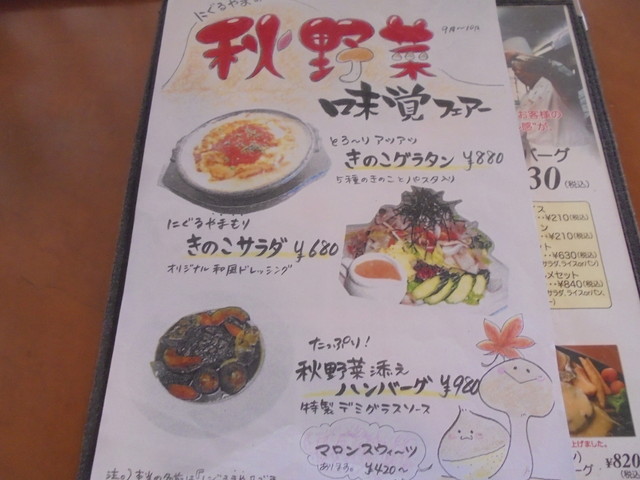 にぐるやまの
秋野菜
9月~10月
味覚フェアー
とろ~りアツアツ
きのこグラタン ¥880
5種のきのことパスタ入り
にぐるやまもり
きのこサラダ ¥680
オリジナル和風ドレッシング
たっぷり!
秋野菜添え
ハンバーグ ¥980
特製デミグラスソース
マロンスウィーツ
あります。 ¥420~
お客様の
バーグ
30(税込)
¥210(税込)
¥210(税込)
¥630(税込)
サラダ、ライスorパン、
メセット
¥840(税込)
サラダ、ライスorパン、
上げました。
¥820
(税込)